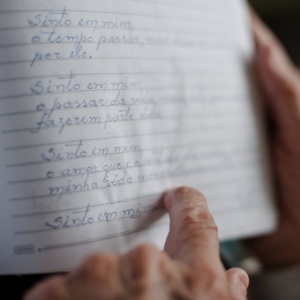 Sinto em mim,
o tempo passar,
por ele.
Sinto em mim,
o passar da vida,
fazerem parte dela.
Sinto em mim,
o amor que
minha vida
Sinto em mim